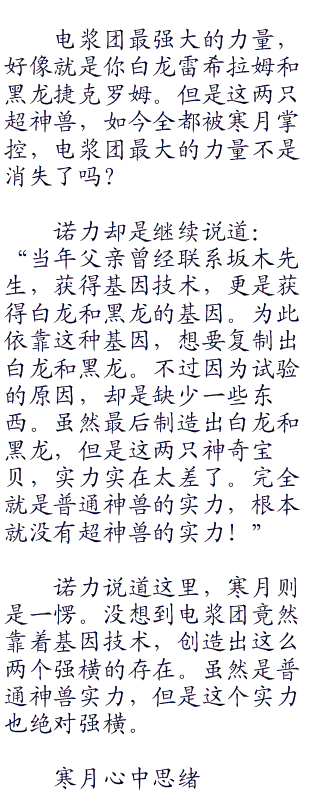 电浆团最强大的力量，
好像就是你白龙雷希拉姆和
黑龙捷克罗姆。但是这两只
超神兽，如今全都被寒月掌
控，电浆团最大的力量不是
消失了吗？
诺力却是继续说道：
“当年父亲曾经联系坂木先
生，获得基因技术，更是获
得白龙和黑龙的基因。为此
依靠这种基因，想要复制出
白龙和黑龙。不过因为试验
的原因，却是缺少一些东
西。虽然最后制造出白龙和
黑龙，但是这两只神奇宝
贝，实力实在太差了。完全
就是普通神兽的实力，根本
就没有超神兽的实力！”
诺力说道这里，寒月则
是一愣。没想到电浆团竟然
靠着基因技术，创造出这么
两个强横的存在。虽然是普
通神兽实力，但是这个实力
也绝对强横。
寒月心中思绪